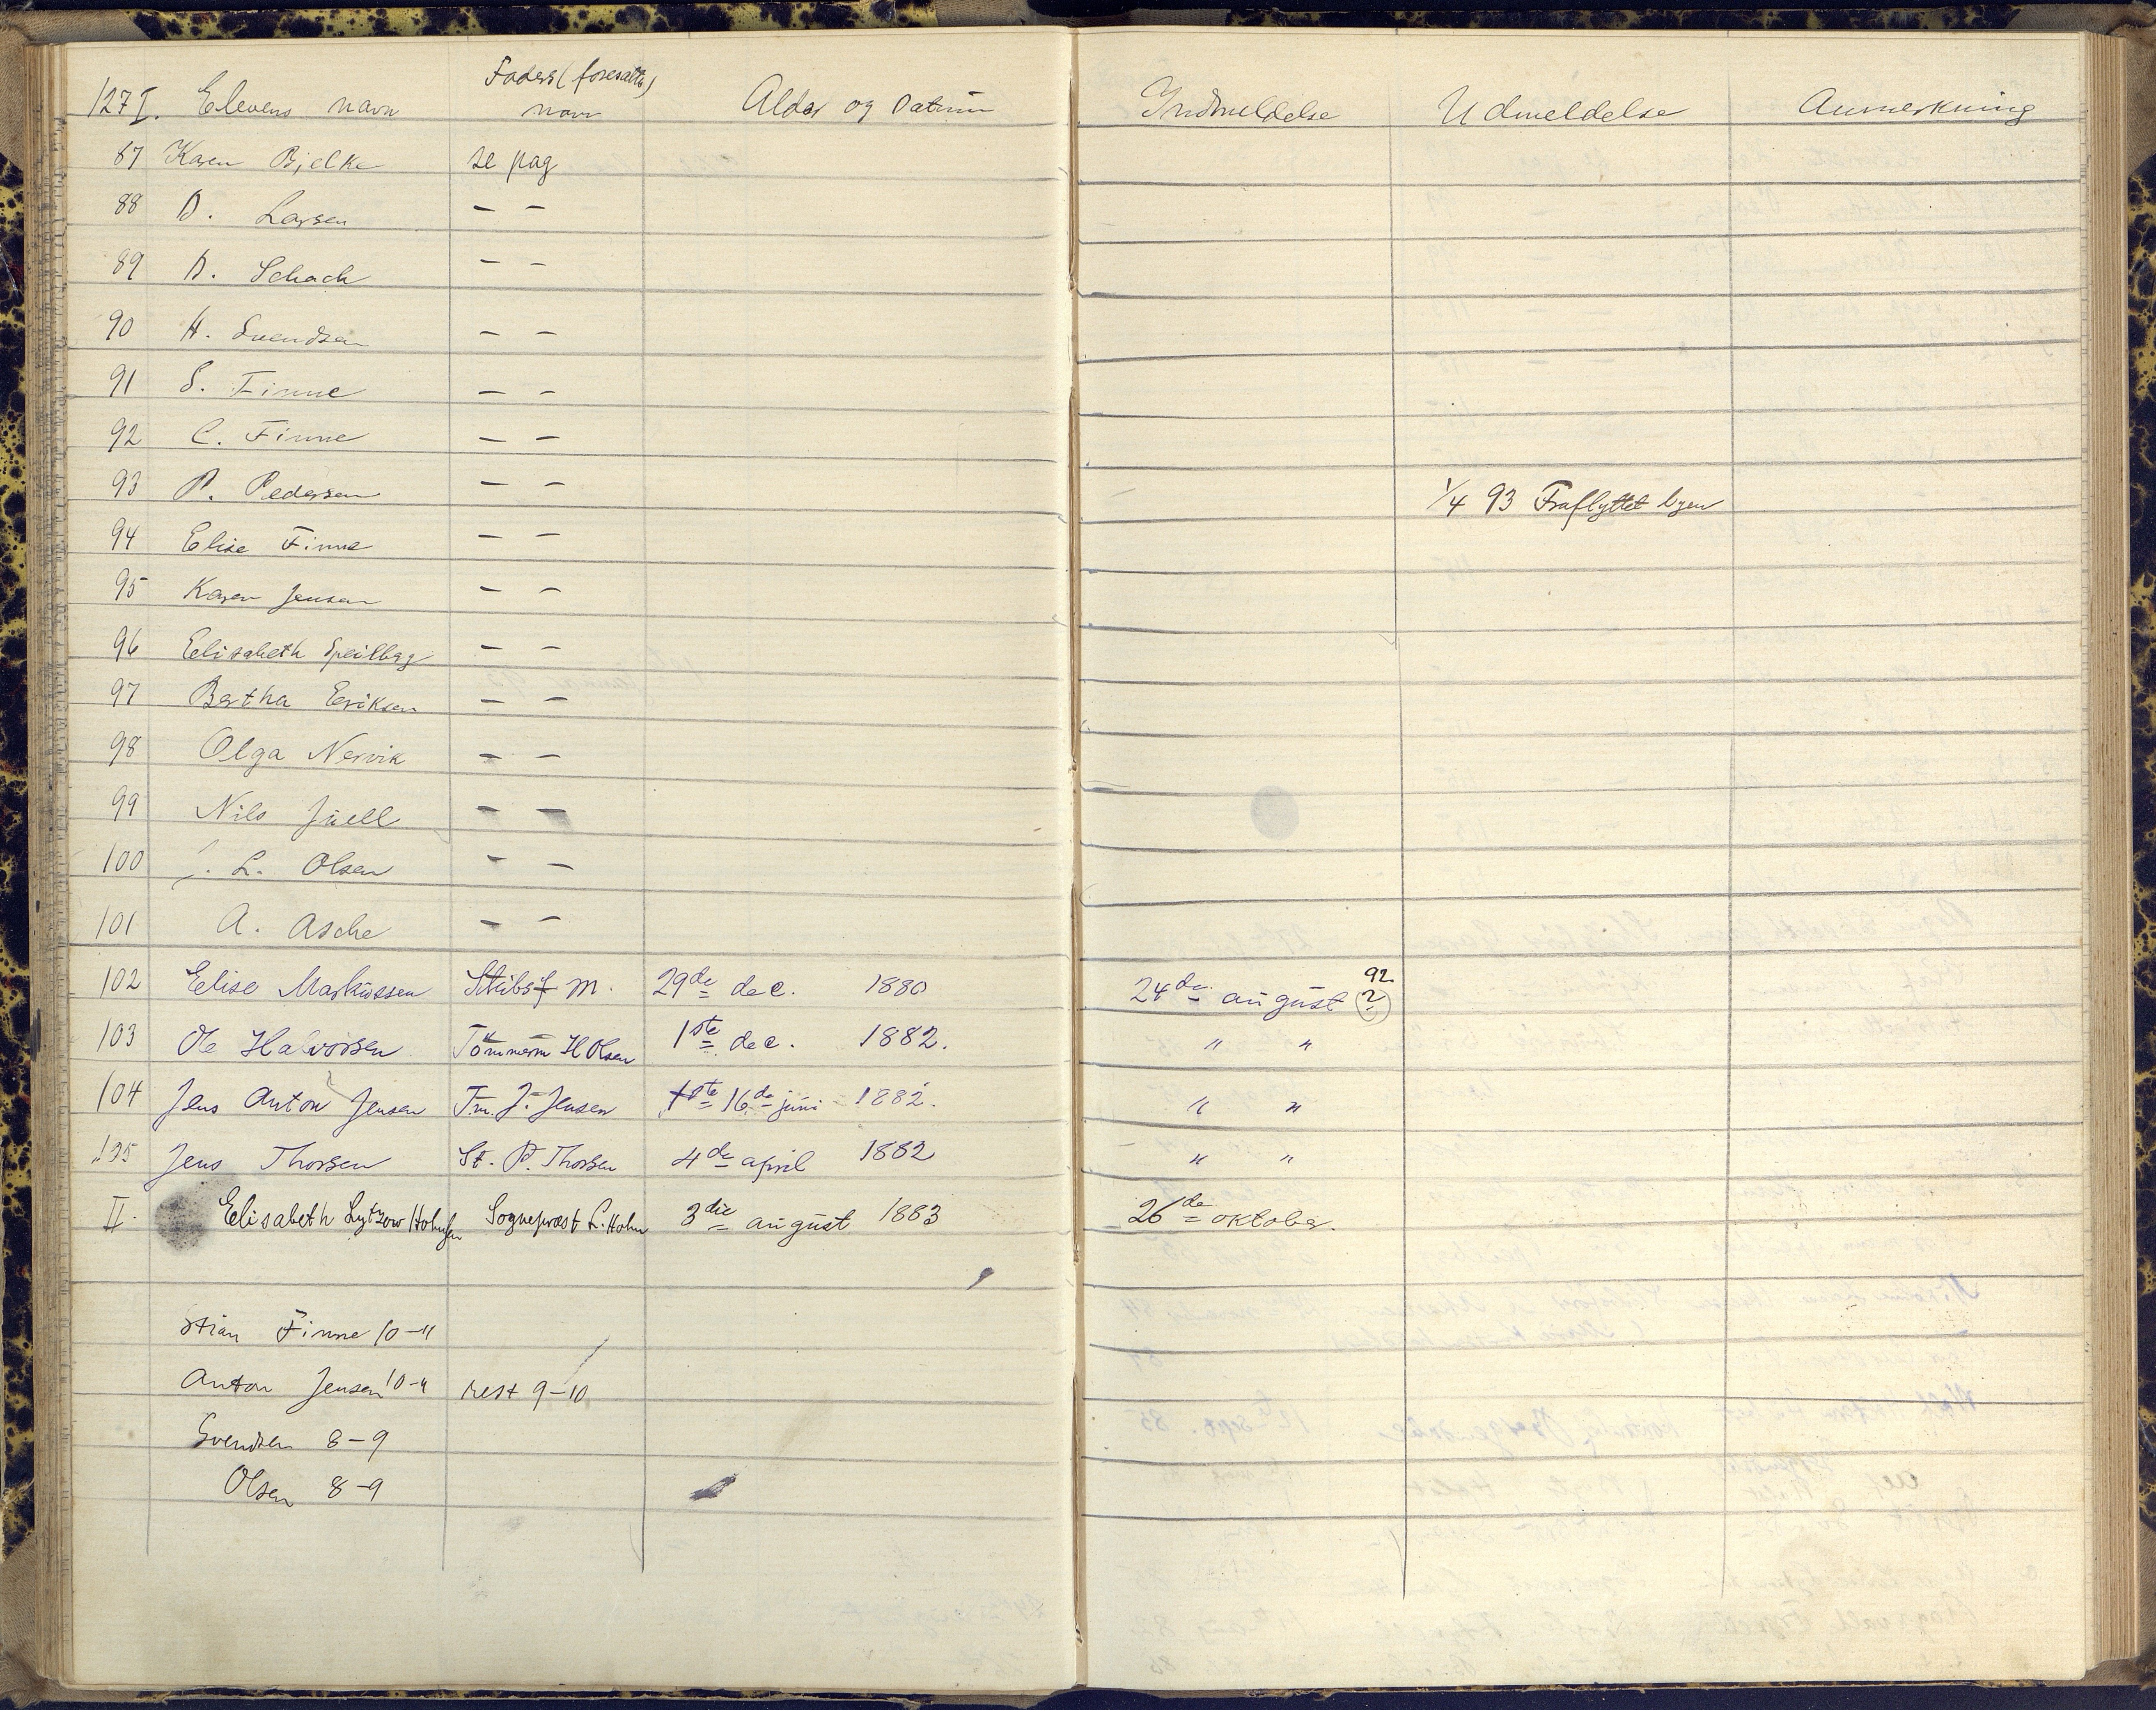 127 I. Elevens navn Faders (foresattes) navn Alder og Datum Indmeldelse Udmeldelse Anmerkning
87 Karen Bjelke se pag
88 D. Larsen — —
89 D. Schach — —
90 H. Svendsen — —
91 S. Finne — —
92 C. Finne — —
93 P. Pedersen — — 1/4 93 Fraflyttet byen
94 Elise Finne — —
95 Karen Jensen — —
96 Elisabeth — —
97 Bertha Eriksen — —
98 Olga Nervik — —
99 Nils Juell — —
100 L. Olsen — —
101 A. Asche — —
102 Elise Markussen M. 29de dec. 1880 24de august 92 (?)
103 Ole Halvorsen Tömmerm H Olsen 1ste dec. 1882. " "
104 Jens Anton Jensen Tm. J. Jensen 1ste 16de juni 1882. " "
105 Jens Thorsen St. P. Thorsen 4de april 1882 " "
II. Elisabeth Lytzow Sogneprest L. Holm 3die august 1883 26de oktober.
Stian Finne 10–11
Anton Jensen 10–11 rest 9–10
Svendsen 8–9
Olsen 8–9